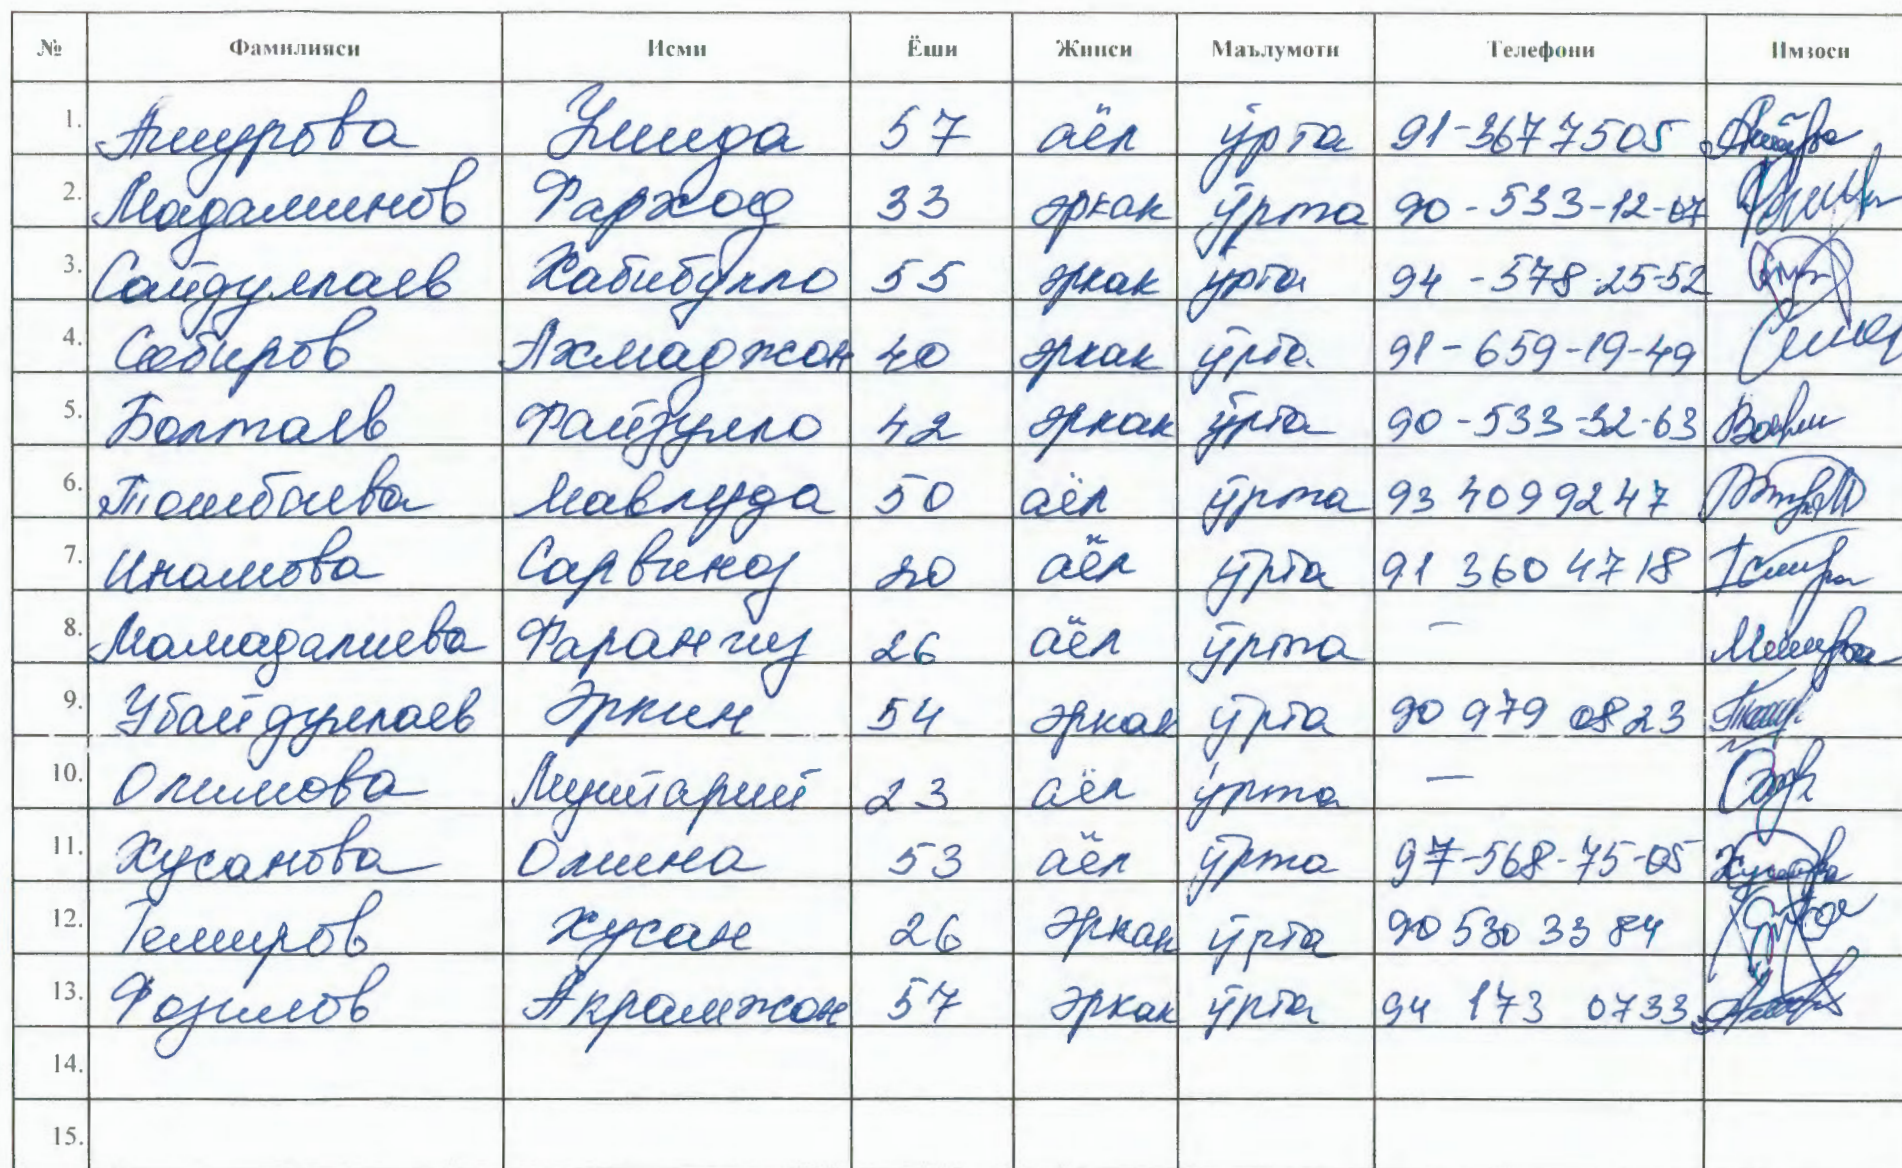 № Фамилияси Исми Ёши Жинси Маълумоти Телефони Имзоси
1. Ашурова Умида 57 аёл ўрта 91-367 7505
2. Мадаминов Фарход 33 эркак ўрта 90-533-12-07
3. Сайдуллаев Хабибулло 55 эркак ўрта 94-578-25-52
4. Собиров Ахмаджон 40 эркак ўрта 91-659-19-49
5. Болтаев Файзулло 42 эркак ўрта 90-533-32-63
6. Тошбоева Мавлуда 50 аёл ўрта 93 409 92 47
7. Инамова Сарвиноз 20 аёл ўрта 91 360 47 18
8. Мамадалиева Фарангиз 26 аёл ўрта –
9. Убайдуллаев Эркин 54 эркак ўрта 90 979 0823
10. Олимова Муштарий 23 аёл ўрта –
11. Хусанова Олима 53 аёл ўрта 97-568-75-05
12. Темиров Хусан 26 эркак ўрта 90 530 33 84
13. Фозилов Акрамжон 57 эркак ўрта 94 173 0733
14.
15.